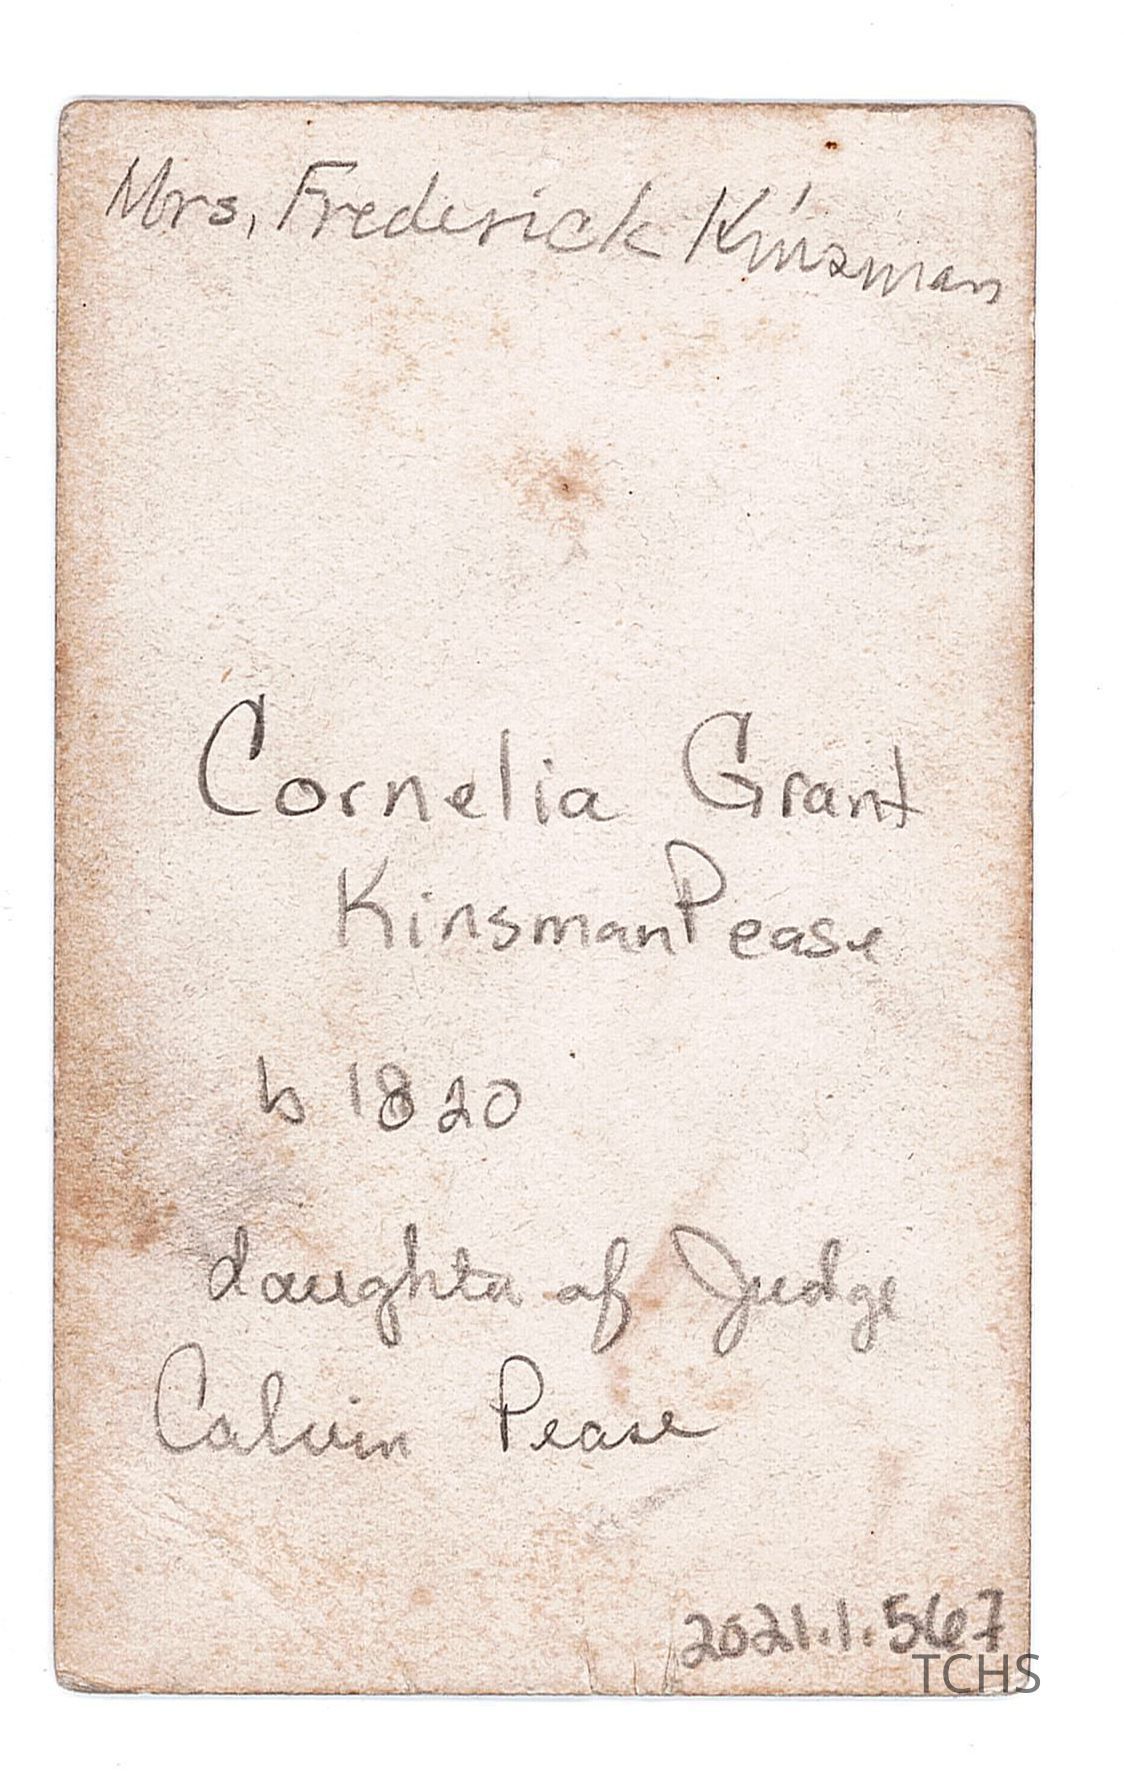 Mrs, Frederick Kinsman
Cornelia Grant
Kinsman Pease
b 1820
daughter of Judge
Calvin Pease
2021.1.567
TCHS